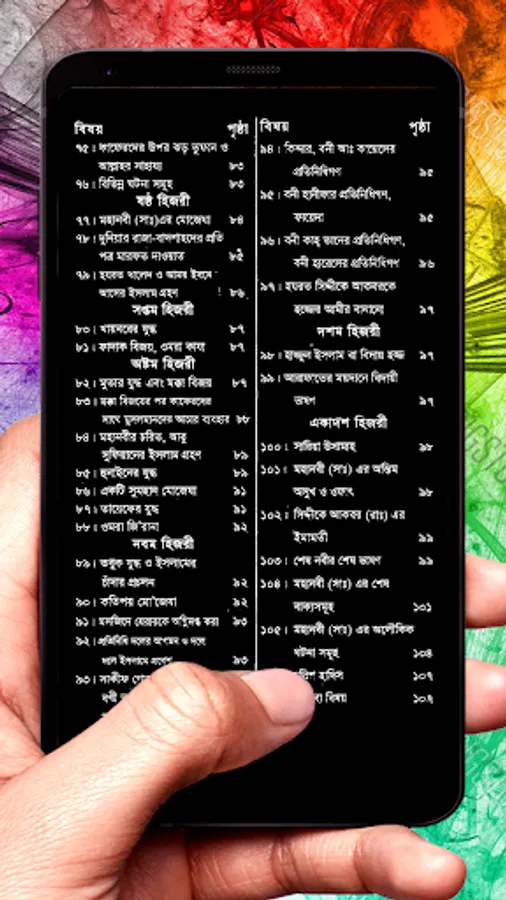 বিষয় পৃষ্ঠা
৭৫। কাফেরদের উপর ঝড় তুফান ও
আল্লাহর সাহায্য ৮৩
৭৬। বিভিন্ন ঘটনা সমূহ ৮৩
ষষ্ঠ হিজরী
৭৭। মহানবী (সাঃ)এর মোজেযা ৮৪
৭৮। দুনিয়ার রাজা-বাদশাহদের প্রতি
পত্র মারফত দাওয়াত ৮৫
৭৯। হযরত খালেদ ও আমর ইবনে
আসের ইসলাম গ্রহণ ৮৬
সপ্তম হিজরী
৮০। খায়বরের যুদ্ধ ৮৭
৮১। ফাদাক বিজয়, ওমরা কাযা ৮৭
অষ্টম হিজরী
৮২। মুতার যুদ্ধ এবং মক্কা বিজয় ৮৭
৮৩। মক্কা বিজয়ের পর কাফেরদের
সাথে মুসলমানদের আচার ব্যবহার ৮৮
৮৪। মহানবীর চরিত্র, আবু
সুফিয়ানের ইসলাম গ্রহণ ৮৯
৮৫। হুনাইনের যুদ্ধ ৮৯
৮৬। একটি সুমহান মোজেযা ৯১
৮৭। তায়েফের যুদ্ধ ৯১
৮৮। ওমরা জি'রানা ৯২
নবম হিজরী
৮৯। তাবুক যুদ্ধ ও ইসলামের
চাঁদার প্রচলন ৯২
৯০। কতিপয় মো'জেযা ৯২
৯১। মসজিদে যেরারকে অগ্নিদগ্ধ করা ৯৩
৯২। প্রতিনিধি দলের আগমন ও দলে
দলে ইসলামে প্রবেশ ৯৩
৯৩। সাকীফ
বিষয় পৃষ্ঠা
৯৪। কিন্দার, বনী আঃ কায়েসের
প্রতিনিধিগণ ৯৫
৯৫। বনী হানীফার প্রতিনিধিগণ,
ফায়েদা ৯৫
৯৬। বনী কাহ্ তানের প্রতিনিধিগণ,
বনী হারেসের প্রতিনিধিগণ ৯৬
৯৭। হযরত সিদ্দীকে আকবরকে
হজ্জের আমীর বানানো ৯৭
দশম হিজরী
৯৮। হাজ্জুল ইসলাম বা বিদায় হজ্জ ৯৭
৯৯। আরাফাতের ময়দানে বিদায়ী
ভাষণ ৯৭
একাদশ হিজরী
১০০। সারিয়া উসামাহ্ ৯৮
১০১। মহানবী (সাঃ) এর অন্তিম
অসুখ ও ওফাৎ ৯৮
১০২। সিদ্দীকে আকবর (রাঃ) এর
ইমামতী ৯৯
১০৩। শেষ নবীর শেষ ভাষণ ৯৯
১০৪। মহানবী (সাঃ) এর শেষ
বাক্যসমূহ ১০১
১০৫। মহানবী (সাঃ) এর অলৌকিক
ঘটনা সমূহ ১০৪
হাদিস ১০৭
বিষয় ১০৭